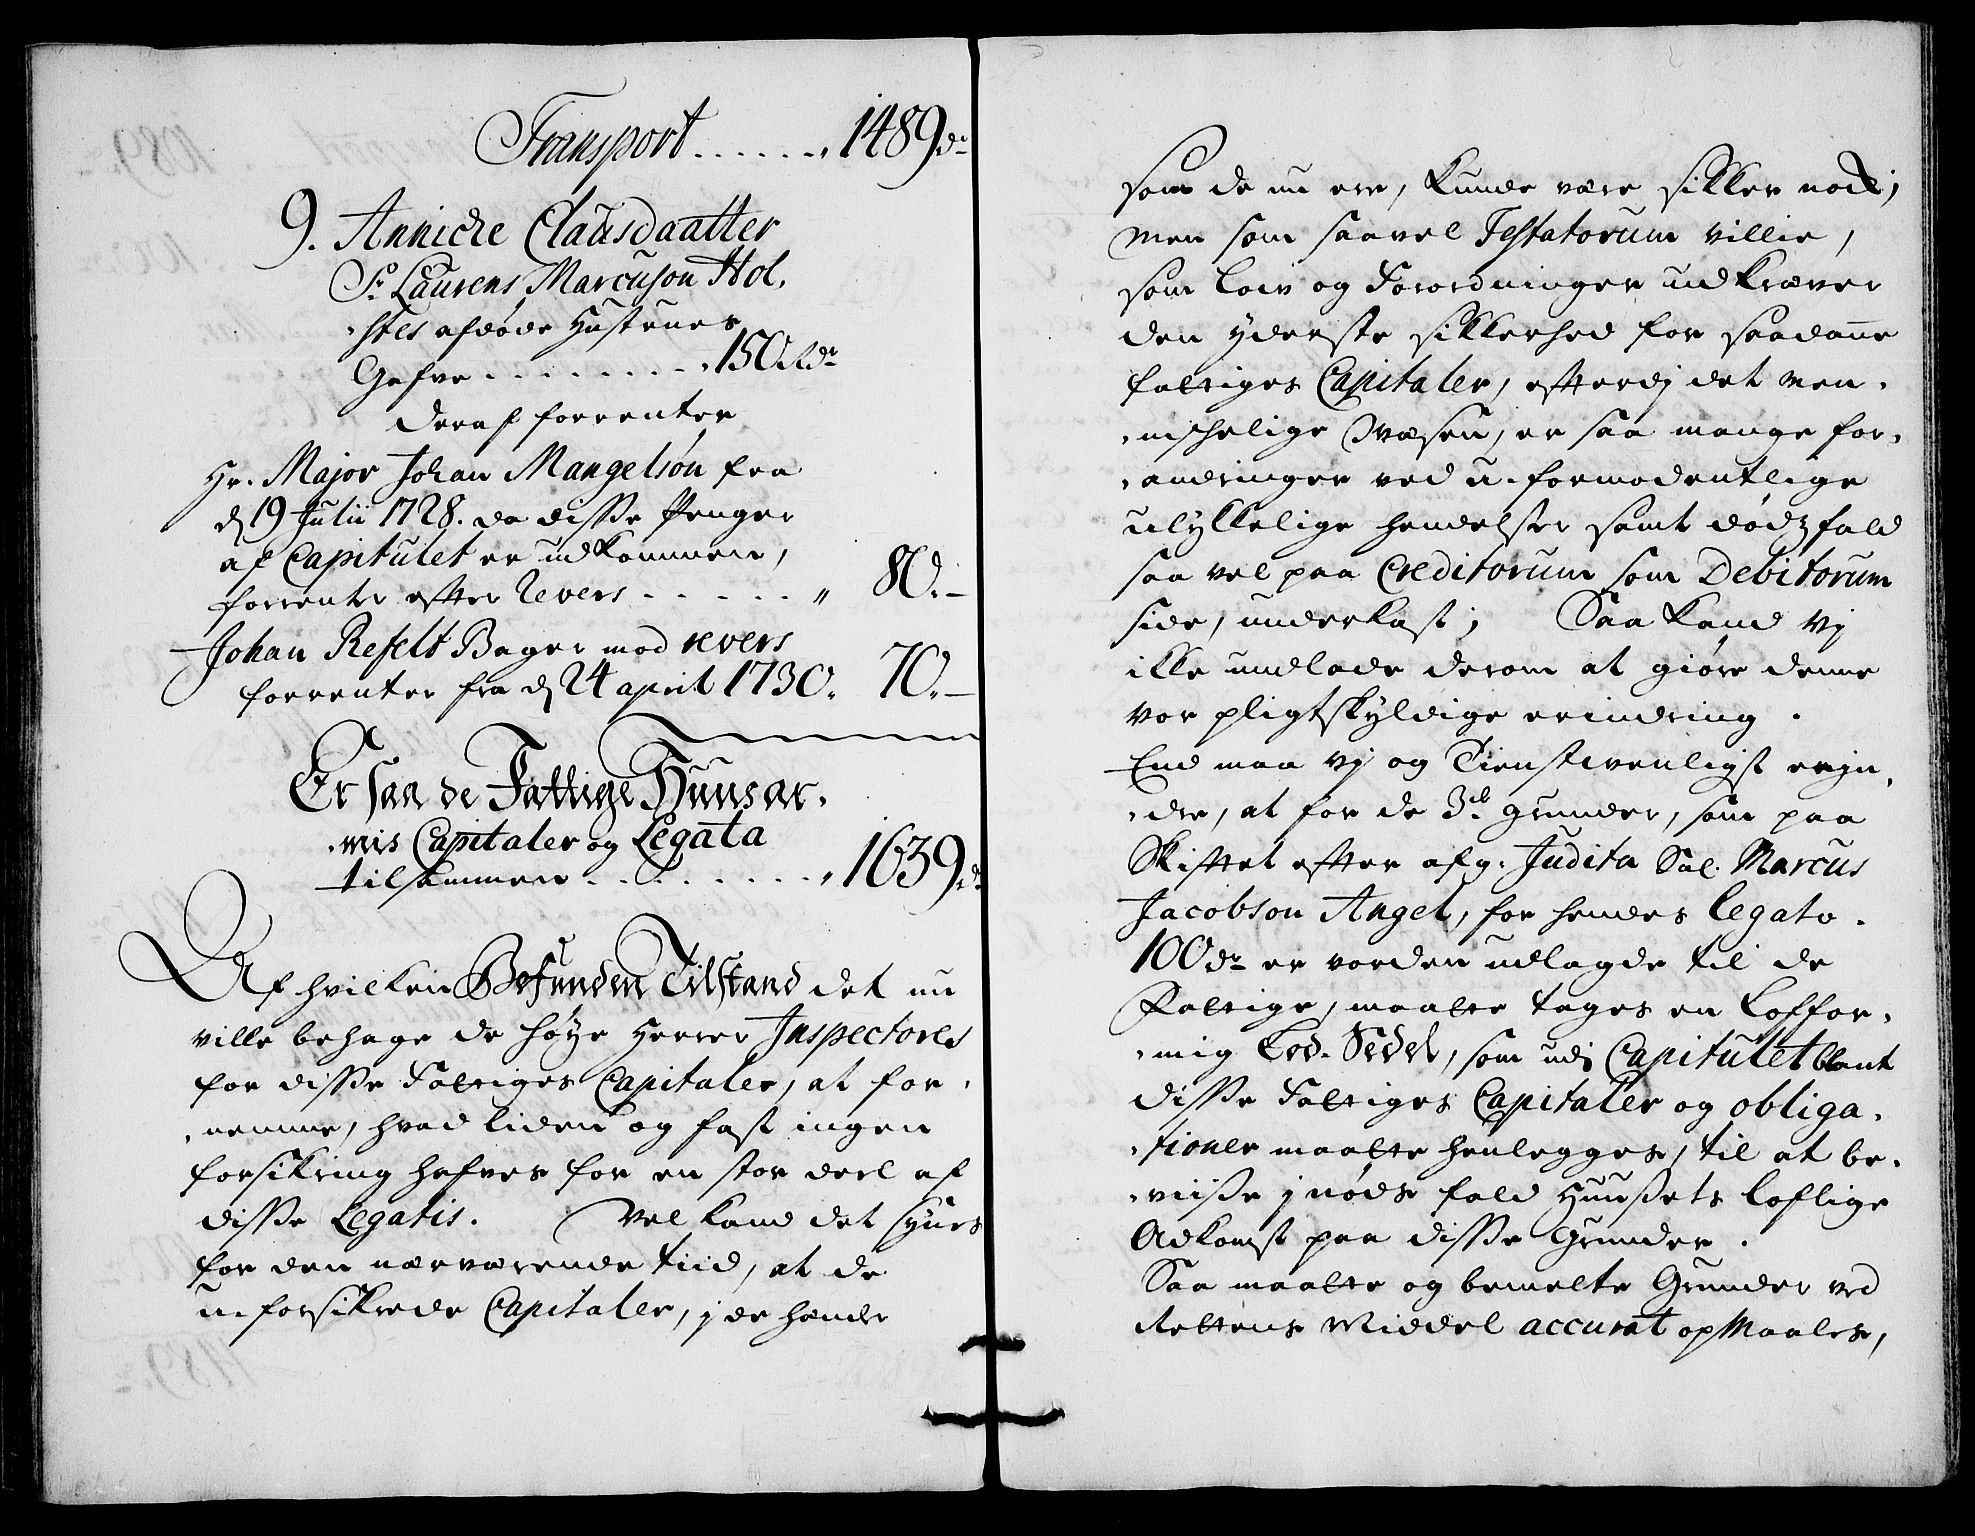 Transport . . . . . . „ 1489 dr
9. Annicke Clausdaatter
Sr. Laurens Marcuson Hol,
,stes afdøde Hustrues
Gafve . . . . . . . . . „ 150 Rdr
Deraf forrenter
Hr. Major Johan Mangelsøn fra
d 19 Julii 1728. da disse Penger
af Capitulet er udkommen,
forrente efter Revers . . . . . . „ 80. –
Johan Refelt Bager mod revers
forrenter fra d 24 april 1730. 70. –
Er saa de Fattige Huusar,
,mis Capitaler og Legata
tilsammen . . . . . . . . . „ 1639 dr
Af hvilken Befunden Tilstand det nu
ville behage de høye Herrer Inspectores
for disse Fattiges Capitaler, at for,
,nemme, hvad liden og fast ingen
forsikring hafves for en stor deel af
disse Legatis. Vel kand det synes
for den nærværende tiid, at de
u-forsikrede Capitaler, j de hænder
som de nu ere, kunde være sikker nock;
men som saavel Testatorum villie,
som Low og Forordninger udkræver
den yderste sikkerhed for saadanne
fattiges Capitaler, efterdj det men,
,nischelige Wæsen, er saa mange for,
,andringer ved u-formodentlige
ulykkelige hendelser samt dødsfald
saa vel paa Creditorum som Debitorum
side, underkast; Saa kand vj
ikke undlade derom at giøre denne
vor pligtskyldige erindring.
End maa vj og Tienstwenligst erin,
,dre, at for de 3de grunder, som paa
Skiftet efter afg. Judita Sal. Marcus
Jacobson Angel, for hendes legato.
100 dr er vorden udlagde til de
Fattige, maatte tages en Loffor,
,mig Lod-Sedel, som udj Capitulet blant
disse Fattiges Capitaler og obliga,
,tioner maatte henlegges, til at be,
,viise j nøds fald Huusets loflige
Adkomst paa disse Grunder.
Saa maatte og bemelte Grunder ved
Rettens Middel accurat opmaales,